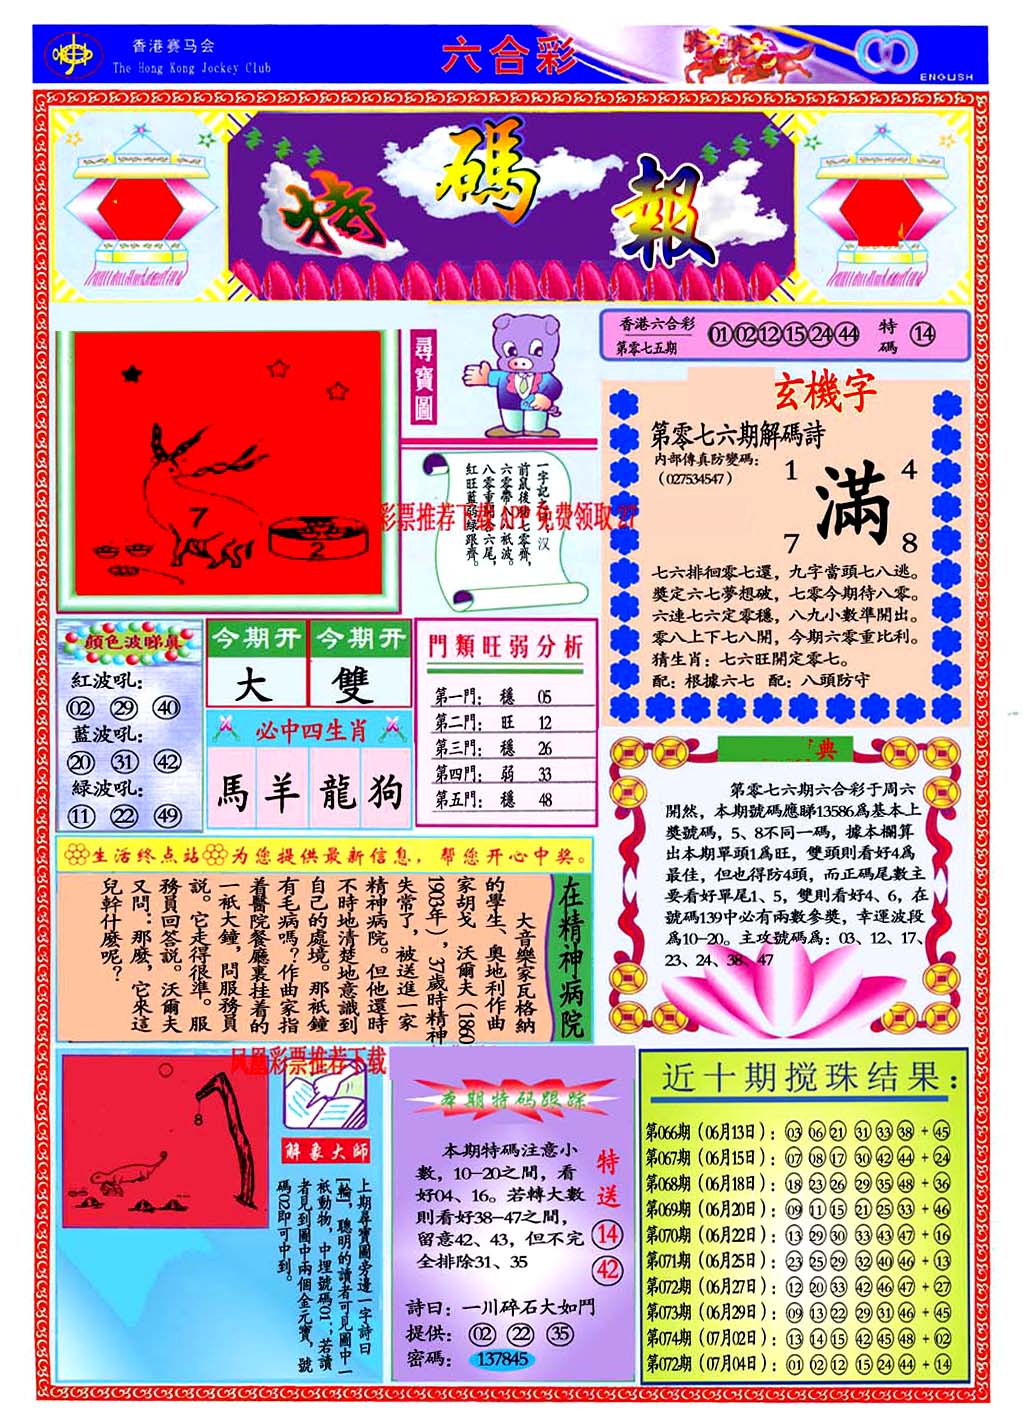 香港赛马会
The Hong Kong Jockey Club
六合彩
ENGLISH
特碼報
尋寶圖
7
2
香港六合彩
第零七五期
01 02 12 15 24 44
特碼
14
玄機字
第零七六期解碼詩
内部傳真防變碼：
（027534547）
1
4
滿
7
8
七六排徊零七還，九字當頭七八逃。
獎定六七夢想破，七零今期待八零。
六連七六定零穩，八九小數準開出。
零八上下七八開，今期六零重比利。
猜生肖：七六旺開定零七。
配：根據六七 配：八頭防守
紅旺藍弱綠跟齊。
彩票推荐下载APP免费领取27
今期开
今期开
大
雙
紅波吼：
02 29 40
藍波吼：
20 31 42
綠波吼：
11 22 49
必中四生肖
馬 羊 龍 狗
門類旺弱分析
第一門： 穩 05
第二門： 旺 12
第三門： 穩 26
第四門： 弱 33
第五門： 穩 48
典
第零七六期六合彩于周六
開然，本期號碼應睇13586爲基本上
獎號碼，5、8不同一碼，據本欄算
出本期單頭1爲旺，雙頭則看好4爲
最佳，但也得防4頭，而正碼尾數主
要看好單尾1、5，雙則看好4、6，在
號碼139中必有兩數參獎，幸運波段
爲10-20。主攻號碼爲：03、12、17、
23、24、38、47
生活终点站 为您提供最新信息，帮您开心中奖。
在精神病院
大音樂家瓦格納
的學生、奧地利作曲
家胡戈 沃爾夫（1860
1903年），37歲時精神
失常了，被送進一家
精神病院。但他還時
不時地清楚地意識到
自己的處境。那衹鐘
有毛病嗎？作曲家指
着醫院餐廳裏挂着的
一衹大鐘，問服務員
説。它走得很準。服
務員回答説。沃爾夫
又問：那麼，它來這
兒幹什麼呢？
凤凰彩票推荐下载
8
解象大師
上期尋寶圖旁邊一字詩曰
【輪】，聰明的讀者可見圖中一
衹動物，中埋號碼01；若讀
者見到圖中兩個金元寶，號
碼02即可中到。
本期特码跟踪
本期特碼注意小
數，10-20之間，看
好04、16。若轉大數
則看好38-47之間，
留意42、43，但不完
全排除31、35
特送
14
42
詩曰：一川碎石大如鬥
提供： 02 22 35
密碼： 137845
近十期搅珠结果：
第066期（06月13日）：03 06 21 31 33 38 + 45
第067期（06月15日）：07 08 17 30 42 44 + 24
第068期（06月18日）：18 23 26 29 35 48 + 36
第069期（06月20日）：09 11 15 21 25 33 + 46
第070期（06月22日）：13 29 30 33 43 47 + 16
第071期（06月25日）：23 25 29 32 40 46 + 13
第072期（06月27日）：12 20 33 42 46 47 + 27
第073期（06月29日）：09 13 22 29 31 46 + 45
第074期（07月02日）：13 14 15 42 45 48 + 02
第072期（07月04日）：01 02 12 15 24 44 + 14